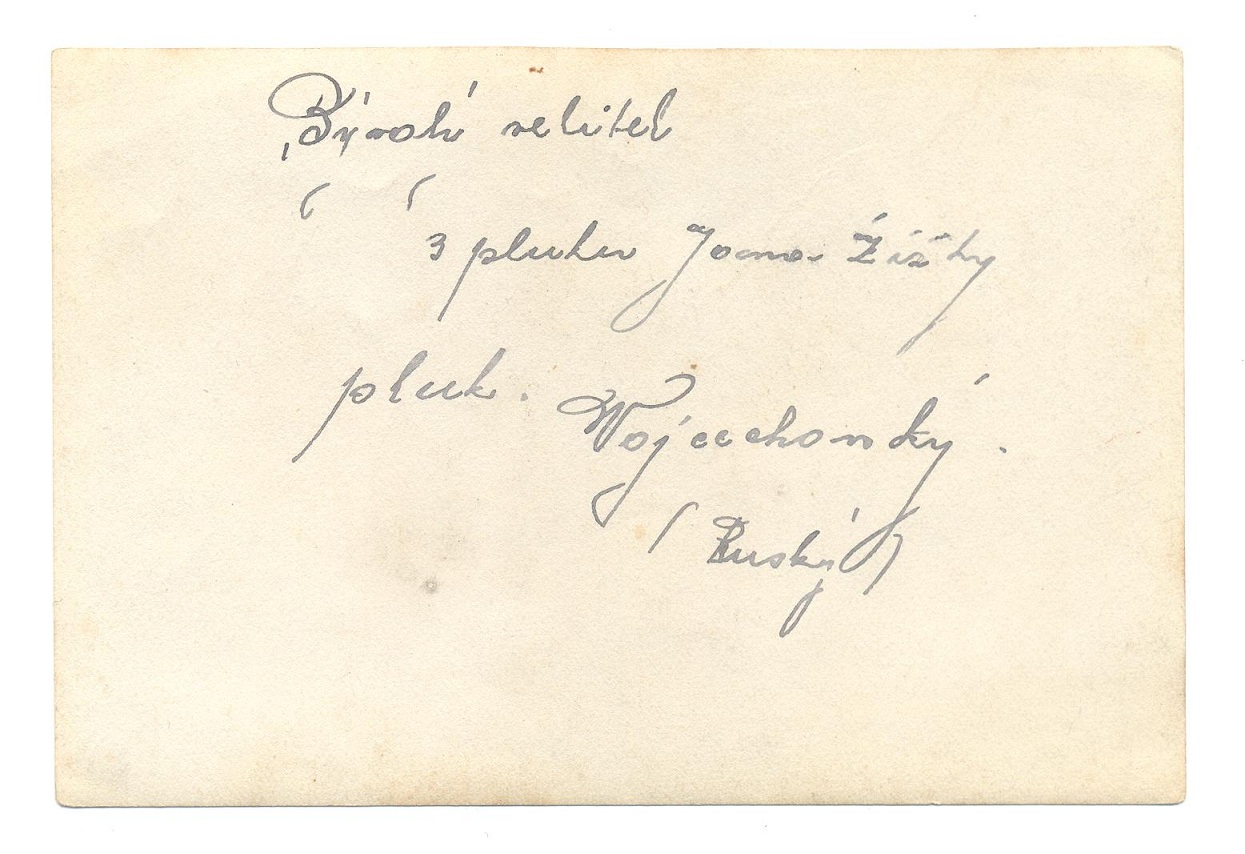 Bývalí velitel
3 pluku Jana Žižky
pluk. Wojcechovský.
(Ruský)